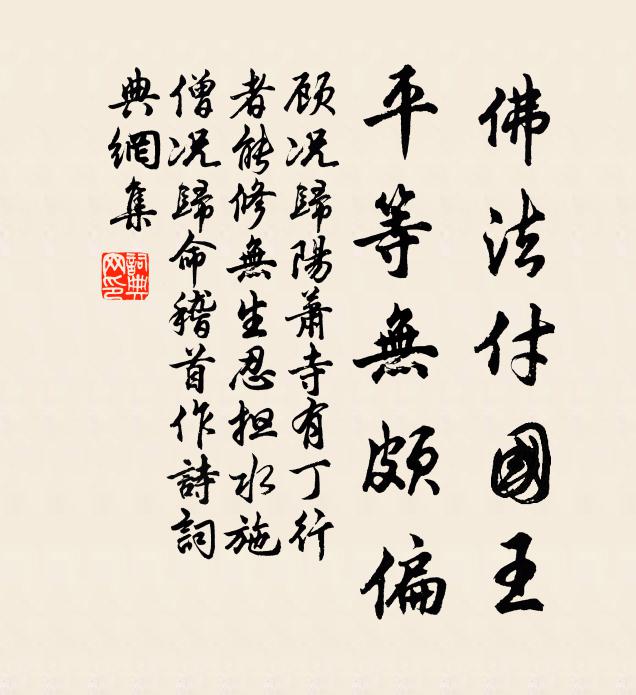 佛法付國王
平等無頗偏
顧況歸陽蕭寺有丁行
者能修無生忍担水施
僧况歸命稽首作詩詞
典網集
詞典網印